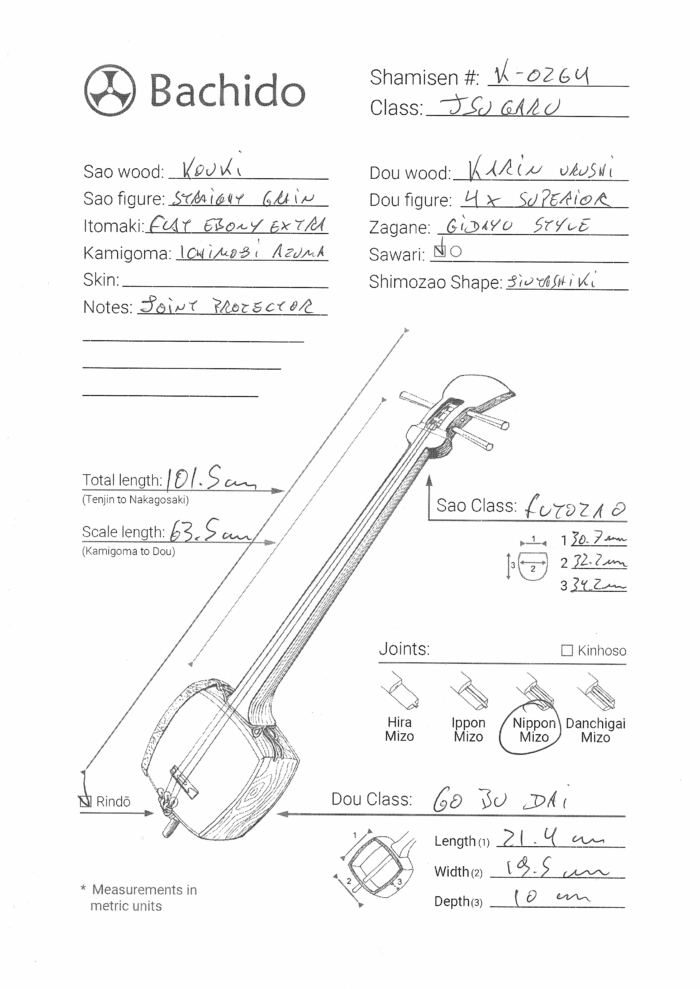 Bachido
Shamisen #: K-0264
Class: TSUGARU
Sao wood: KOUKi
Sao figure: STRAIGHT GRAIN
Itomaki: FLAT EBONY EXTRA
Kamigoma: ICHIMOBi AZUMA
Skin:
Notes: JOINT PROTECTOR
Dou wood: KARIN URUSHi
Dou figure: 4x SUPERIOR
Zagane: GiDAYU STYLE
Sawari:
Shimozao Shape:
Total length: 101.5 cm
(Tenjin to Nakagosaki)
Scale length: 63.5 cm
(Kamigoma to Dou)
Sao Class: FUTOZAO
1
3
2
1 30.7 mm
2 32.2 mm
3 34.2 mm
Joints:
Kinhoso
Hira Mizo
Ippon Mizo
Nippon Mizo
Danchigai Mizo
Rindō
Dou Class: GO BU DAi
1
2
3
Length(1) 21.4 cm
Width(2) 19.5 cm
Depth(3) 10 cm
* Measurements in
metric units